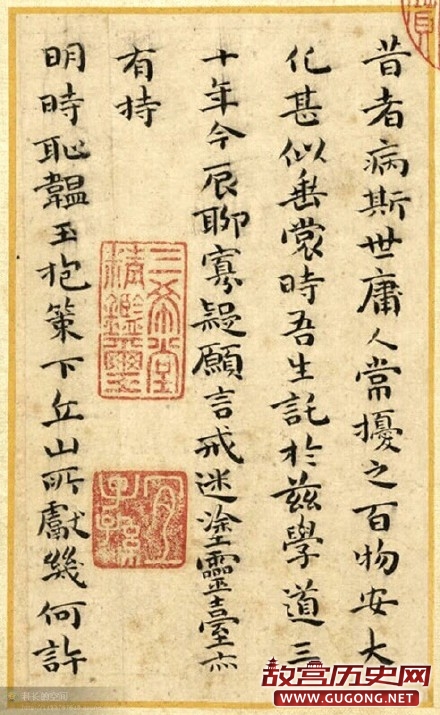 昔者病斯世庸人常擾之百物安大
化甚似垂裳時吾生託於茲學道三
十年今辰聊寡疑願言戒迷塗靈臺亦
有持
明時恥韞玉抱策下丘山所獻幾何許
三希堂精鑑璽
宜子孫
故宫历史网
WWW.GUGONG.NET